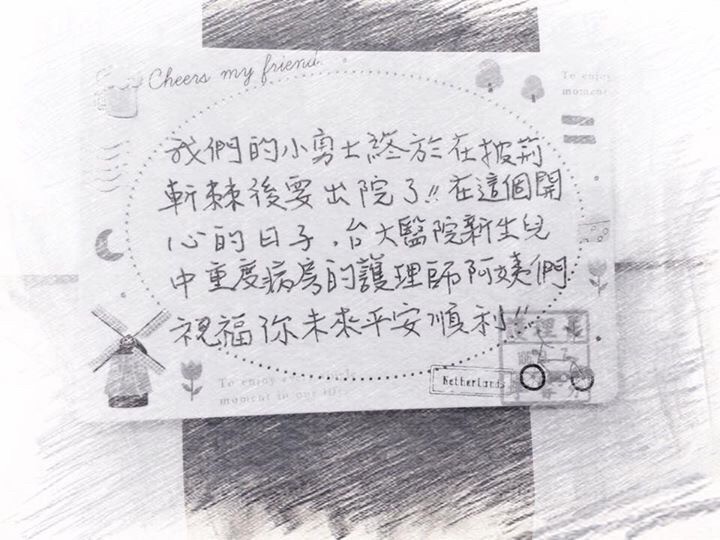 Cheers my friend
To enjoy
moment
我們的小勇士終於在披荊
斬棘後要出院了!!在這個開
心的日子,台大醫院新生兒
中重度病房的護理師阿姨們
祝福你未來平安順利!!
To enjoy
moment in our life
Netherlands